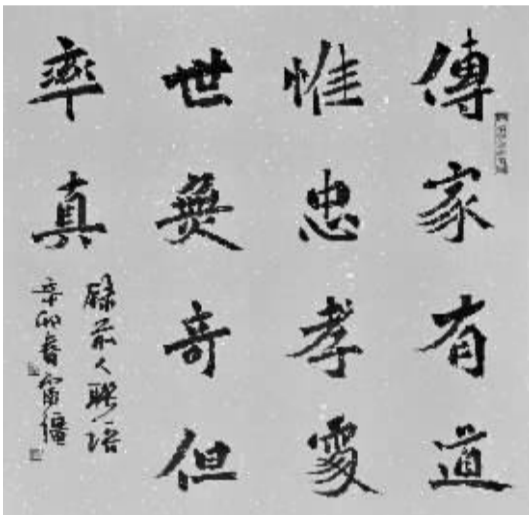 傳家有道
惟忠孝處
世無奇但
率真
録前人聯語
辛卯春